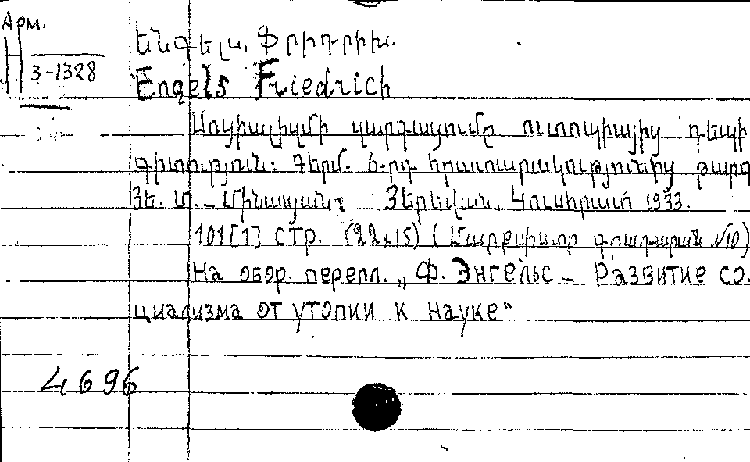 Арм.
3-1328
Ենգելս, Ֆրիդրիխ.
Engels Friedrich
Սոցիալիզմի զարգացումը ուտոպիայից դեպի
գիտություն: Գերմ. 6-րդ հրատարակությունից թարգ
Հե. Տ. - Մինասյան: Յերեվան, Կուսհրատ 1933.
101[1] стр. (22x15) (Մարքսիստի գրադարան №10)
На обор. перепл. „Ф. Энгельс – Развитие со.
циализма от утопки к науке"
4696